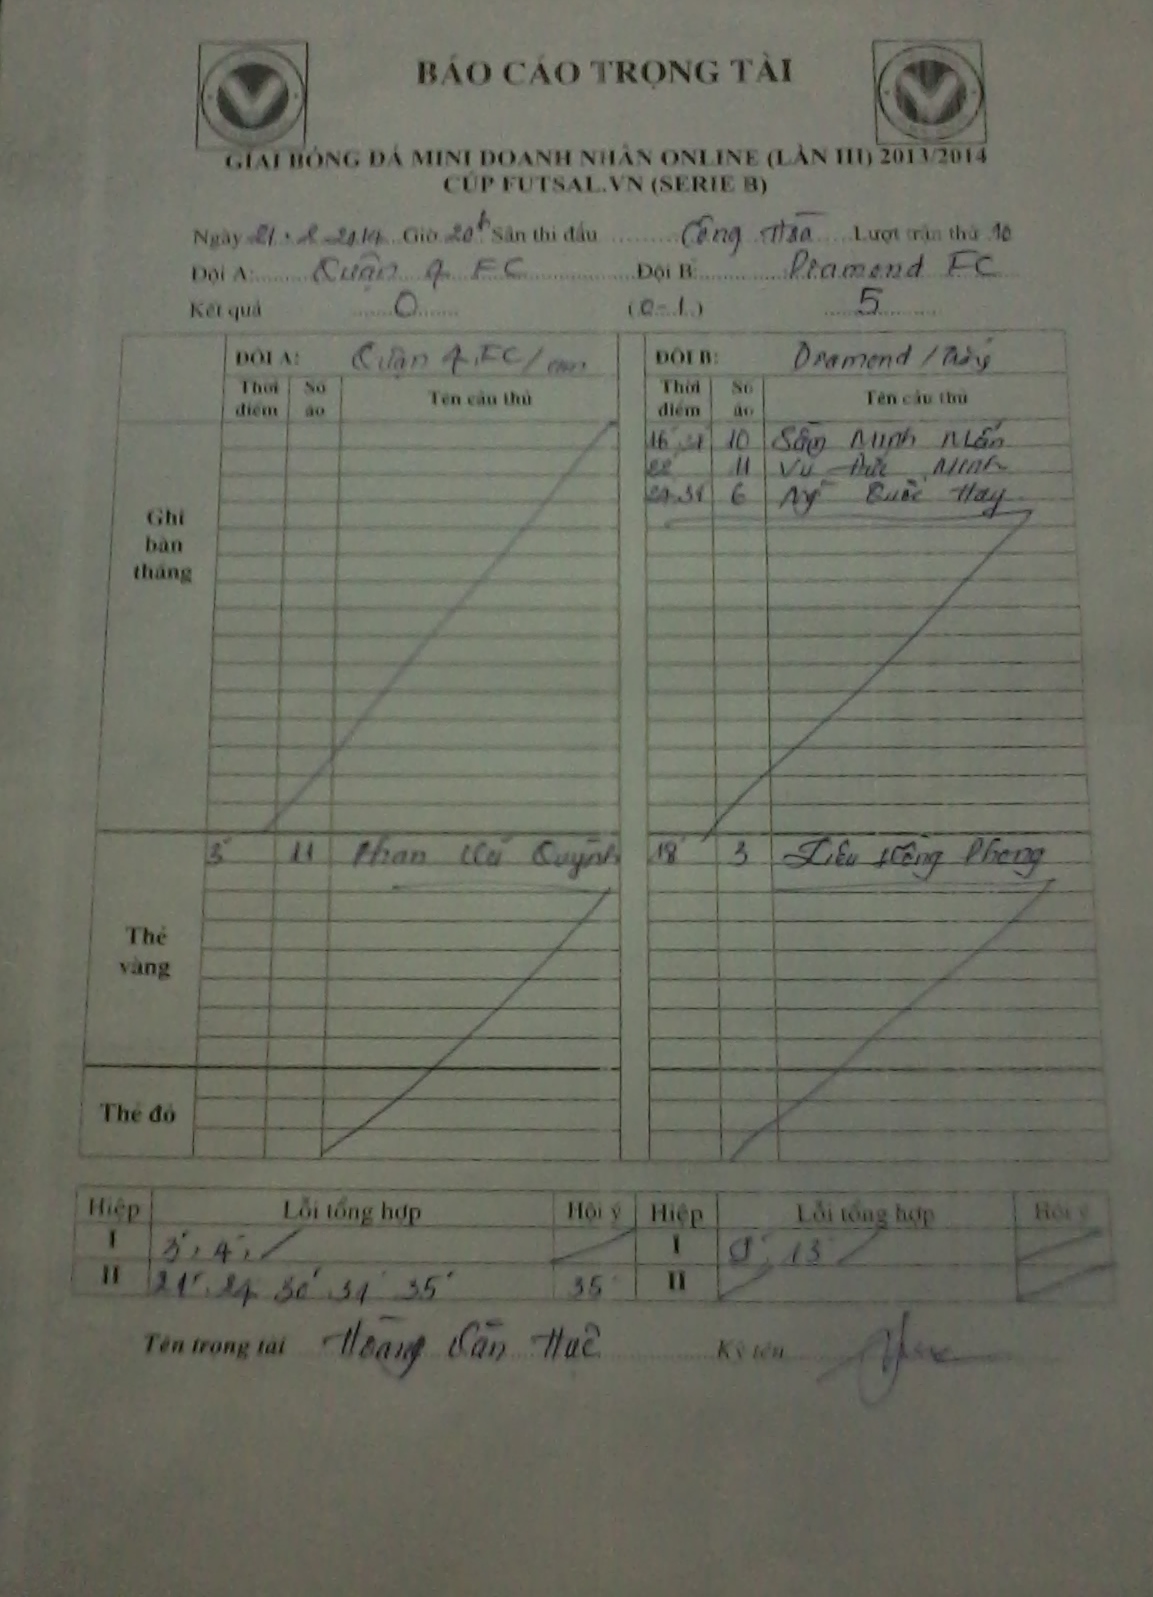 BÁO CÁO TRỌNG TÀI
GIẢI BÓNG ĐÁ MINI DOANH NHÂN ONLINE (LẦN III) 2013/2014
CÚP FUTSAL.VN (SERIE B)
Ngày 21.2.2014 Giờ 20h Sân thi đấu Cộng Hòa Lượt trận thứ 10
Đội A: Quận 4 FC Đội B: Diamond FC
Kết quả 0 (0-1) 5
ĐỘI A: Quận 4 FC / ĐỘI B: Diamond /
Thời điểm Số áo Tên cầu thủ Thời điểm Số áo Tên cầu thủ
Ghi bàn thắng
16' 10 Minh Mẫn
22' 11 Vũ Đức Minh
6 Quốc Huy
Thẻ vàng
3' 11 Phan Quỳnh 18' 3 Hồng Phong
Thẻ đỏ
Hiệp Lỗi tổng hợp Hội ý Hiệp Lỗi tổng hợp Hội ý
I 3', 4' I 13'
II 21' 24 30' 31' 35' 35' II
Tên trọng tài Hoàng Văn Huê Ký tên